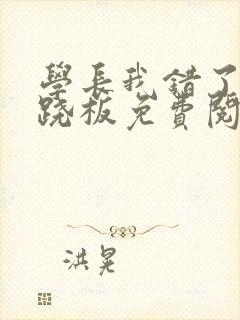 學長我錯了
跷板免費閱
洪晃